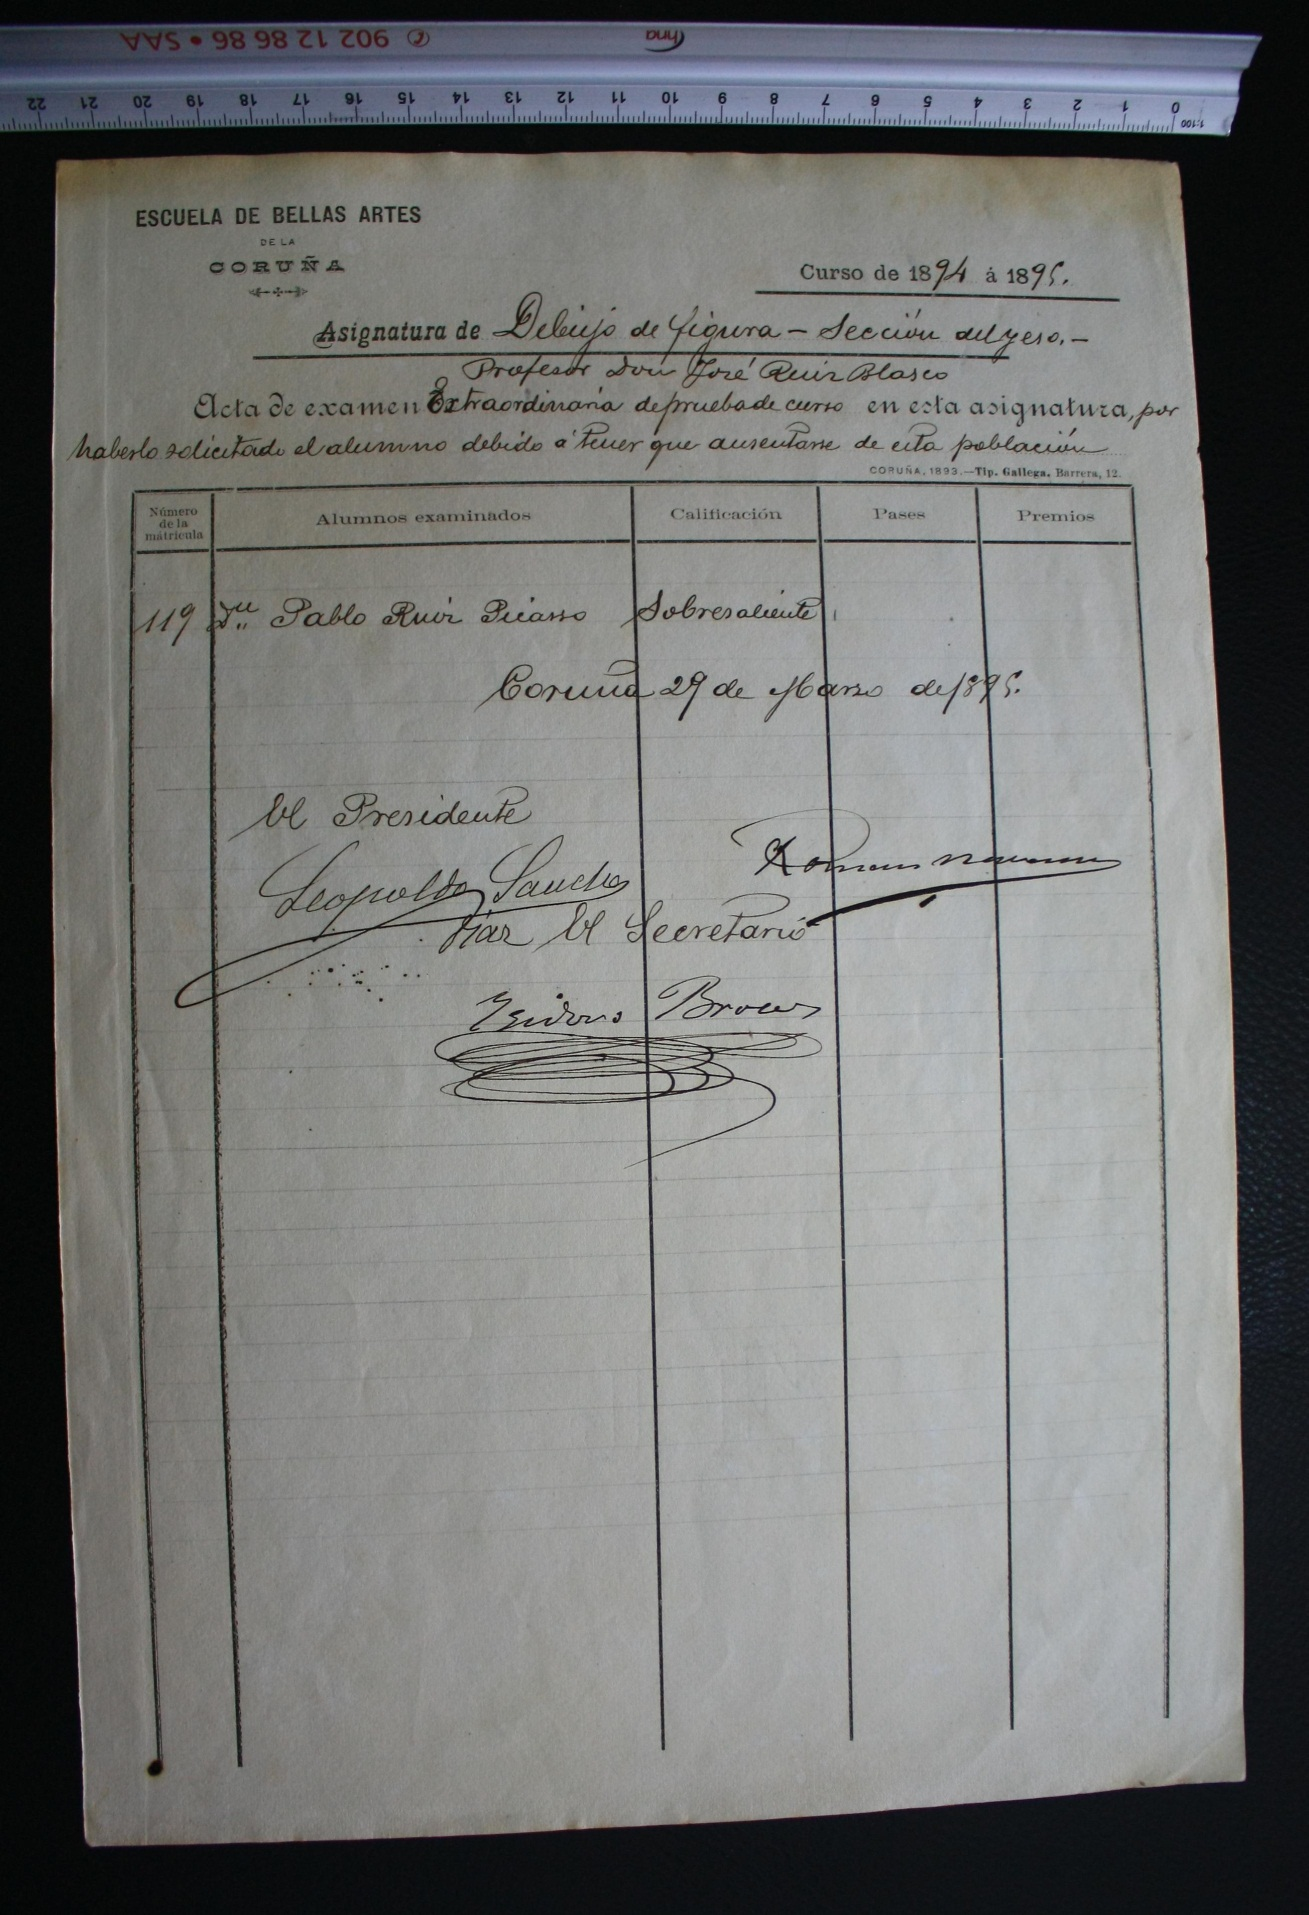 902 12 86 86 • SAA
hna
22 21 20 19 18 17 16 15 14 13 12 11 10 9 8 7 6 5 4 3 2 1 0
1:100
ESCUELA DE BELLAS ARTES
DE LA
CORUÑA
Curso de 1894 á 1895.
Asignatura de Dibujo de figura — Sección del yeso. —
Profesor Don José Ruiz Blasco
Acta de examen Extraordinaria de prueba de curso en esta asignatura, por
haberlo solicitado el alumno debido á tener que ausentarse de esta población
CORUÑA, 1893.—Tip. Gallega. Barrera, 12.
Número de la mátricula Alumnos examinados Calificación Pases Premios
119 Dn Pablo Ruiz Picasso Sobresaliente
Coruña 29 de Marzo de 1895.
El Presidente
Roman Navarro
Leopoldo Sanchez
Diaz El Secretario
Isidoro Brocos